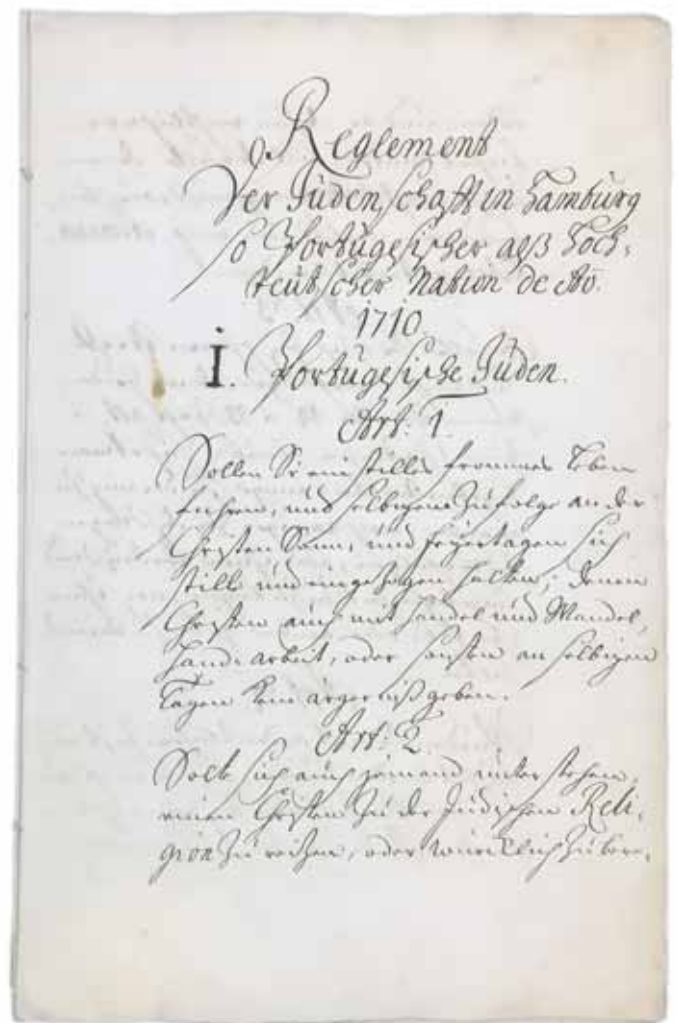 Reglement
Der Jüdenschafft in Hamburg
so Portugesischer alß Hoch-
teutscher Nation de Ao.
1710.
I. Portugesische Jüden.
Art: 1.
Sollen Sie ein stilles frommes Leben
führen, und selbigem zufolge an der
Christen Sonn, und Feyertagen sich
still und eingezogen halten, denen
Christen auch mit Handel und Wandel,
Hand-arbeit, oder sonsten an selbigen
Tagen kein ärgerniß geben.
Art: 2.
Solte sich auch jemand unterstehen,
einen Christen zu der Jüdischen Reli-
gion zu reitzen, oder würcklich zu bere-